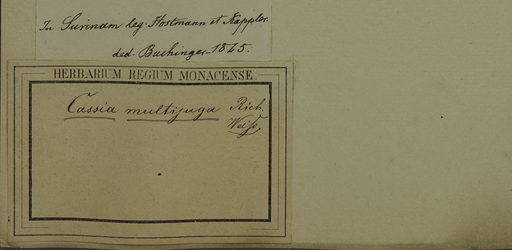 In Surinam leg. Hostmann et Kappler.
ded. Buchinger 1845.
HERBARIUM REGIUM MONACENSE.
Cassia multijuga Rich.